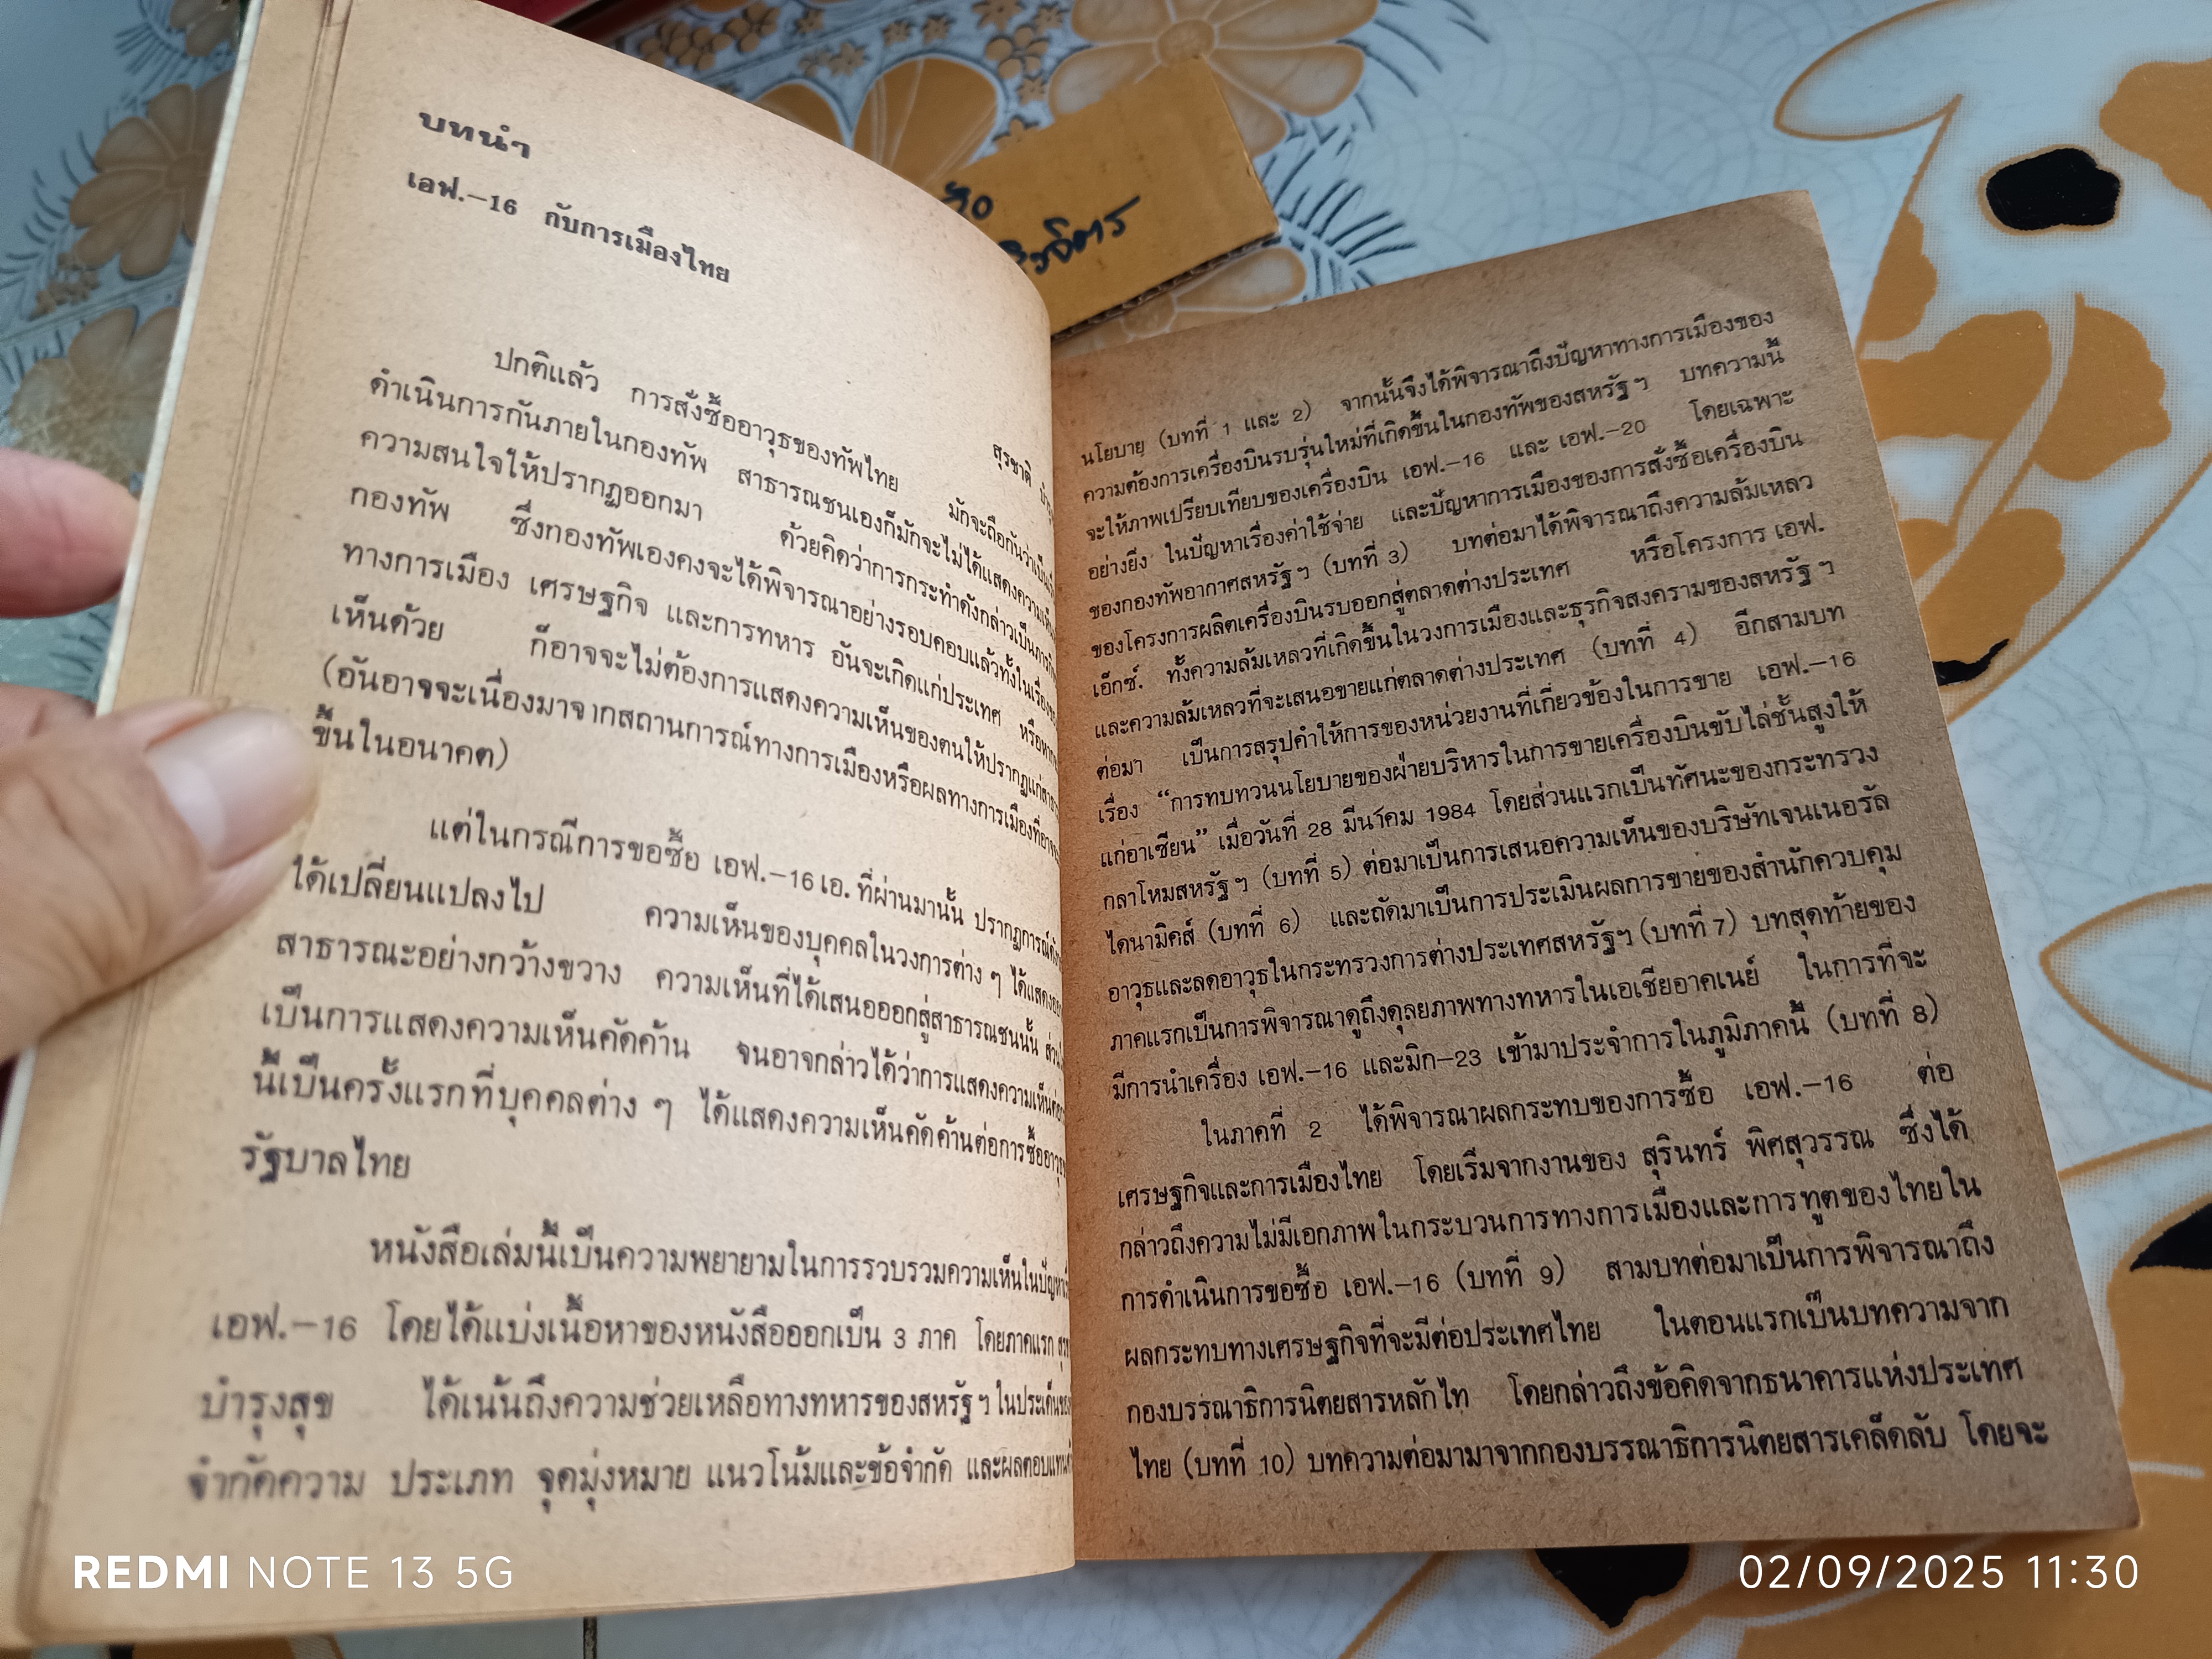 บทนำ
เอฟ.-16 กับการเมืองไทย
สุรชาติ
ปกติแล้ว การสั่งซื้ออาวุธของทัพไทย มักจะถือกันว่าเป็น
ดำเนินการกันภายในกองทัพ สาธารณชนเองก็มักจะไม่ได้แสดงความ
ความสนใจให้ปรากฏออกมา ด้วยคิดว่าการกระทำดังกล่าวเป็น
กองทัพ ซึ่งกองทัพเองคงจะได้พิจารณาอย่างรอบคอบแล้วทั้งในเรื่อง
ทางการเมือง เศรษฐกิจ และการทหาร อันจะเกิดแก่ประเทศ
เห็นด้วย ก็อาจจะไม่ต้องการแสดงความเห็นของตนให้ปรากฏแก่
(อันอาจจะเนื่องมาจากสถานการณ์ทางการเมืองหรือผลทางการเมืองที่
ขึ้นในอนาคต)
แต่ในกรณีการขอซื้อ เอฟ.-16 เอ. ที่ผ่านมานั้น ปรากฏการณ์
ได้เปลี่ยนแปลงไป ความเห็นของบุคคลในวงการต่าง ๆ ได้แสดง
สาธารณะอย่างกว้างขวาง ความเห็นที่ได้เสนอออกสู่สาธารณชนนั้น
เป็นการแสดงความเห็นคัดค้าน จนอาจกล่าวได้ว่าการแสดงความเห็น
นี้เป็นครั้งแรกที่บุคคลต่าง ๆ ได้แสดงความเห็นคัดค้านต่อการซื้อ
รัฐบาลไทย
หนังสือเล่มนี้เป็นความพยายามในการรวบรวมความเห็นใน
เอฟ.-16 โดยได้แบ่งเนื้อหาของหนังสือออกเป็น 3 ภาค โดยภาคแรก
บำรุงสุข ได้เน้นถึงความช่วยเหลือทางทหารของสหรัฐฯ ในประเด็น
จำกัดความ ประเภท จุดมุ่งหมาย แนวโน้มและข้อจำกัด และผลตอบแทน
นโยบาย (บทที่ 1 และ 2) จากนั้นจึงได้พิจารณาถึงปัญหาทางการเมืองของ
ความต้องการเครื่องบินรบรุ่นใหม่ที่เกิดขึ้นในกองทัพของสหรัฐฯ บทความนี้
จะให้ภาพเปรียบเทียบของเครื่องบิน เอฟ.-16 และ เอฟ.-20 โดยเฉพาะ
อย่างยิ่ง ในปัญหาเรื่องค่าใช้จ่าย และปัญหาการเมืองของการสั่งซื้อเครื่องบิน
ของกองทัพอากาศสหรัฐฯ (บทที่ 3) บทต่อมาได้พิจารณาถึงความล้มเหลว
ของโครงการผลิตเครื่องบินรบออกสู่ตลาดต่างประเทศ หรือโครงการ เอฟ.
เอ็กซ์. ทั้งความล้มเหลวที่เกิดขึ้นในวงการเมืองและธุรกิจสงครามของสหรัฐฯ
และความล้มเหลวที่จะเสนอขายแก่ตลาดต่างประเทศ (บทที่ 4) อีกสามบท
ต่อมา เป็นการสรุปคำให้การของหน่วยงานที่เกี่ยวข้องในการขาย เอฟ.-16
เรื่อง “การทบทวนนโยบายของฝ่ายบริหารในการขายเครื่องบินขับไล่ชั้นสูงให้
แก่อาเซียน” เมื่อวันที่ 28 มีนาคม 1984 โดยส่วนแรกเป็นทัศนะของกระทรวง
กลาโหมสหรัฐฯ (บทที่ 5) ต่อมาเป็นการเสนอความเห็นของบริษัทเจนเนอรัล
ไดนามิคส์ (บทที่ 6) และถัดมาเป็นการประเมินผลการขายของสำนักควบคุม
อาวุธและลดอาวุธในกระทรวงการต่างประเทศสหรัฐฯ (บทที่ 7) บทสุดท้ายของ
ภาคแรกเป็นการพิจารณาดูถึงดุลยภาพทางทหารในเอเชียอาคเนย์ ในการที่จะ
มีการนำเครื่อง เอฟ.-16 และมิก-23 เข้ามาประจำการในภูมิภาคนี้ (บทที่ 8)
ในภาคที่ 2 ได้พิจารณาผลกระทบของการซื้อ เอฟ.-16 ต่อ
เศรษฐกิจและการเมืองไทย โดยเริ่มจากงานของ สุรินทร์ พิศสุวรรณ ซึ่งได้
กล่าวถึงความไม่มีเอกภาพในกระบวนการทางการเมืองและการทูตของไทยใน
การดำเนินการขอซื้อ เอฟ.-16 (บทที่ 9) สามบทต่อมาเป็นการพิจารณาถึง
ผลกระทบทางเศรษฐกิจที่จะมีต่อประเทศไทย ในตอนแรกเป็นบทความจาก
กองบรรณาธิการนิตยสารหลักไท โดยกล่าวถึงข้อคิดจากธนาคารแห่งประเทศ
ไทย (บทที่ 10) บทความต่อมามาจากกองบรรณาธิการนิตยสารเคล็ดลับ โดยจะ
REDMI NOTE 13 5G
02/09/2025 11:30